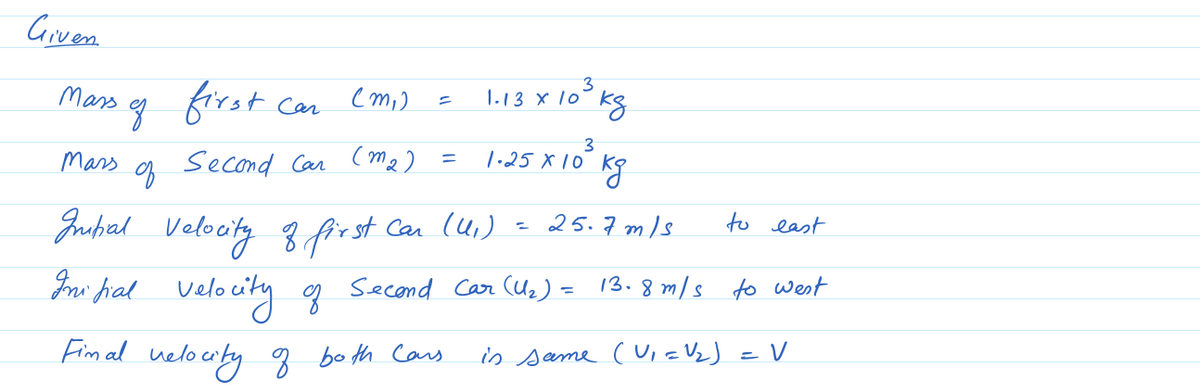 Given
Mass of first car (m₁) = 1.13 x 10³ kg
Mass of Second Car (m₂) = 1.25 x 10³ kg
Initial Velocity of first Car (u₁) = 25.7 m/s to east
Initial velocity of Second Car (u₂) = 13.8 m/s to west
Final velocity of both Cars is same (V₁ = V₂) = V